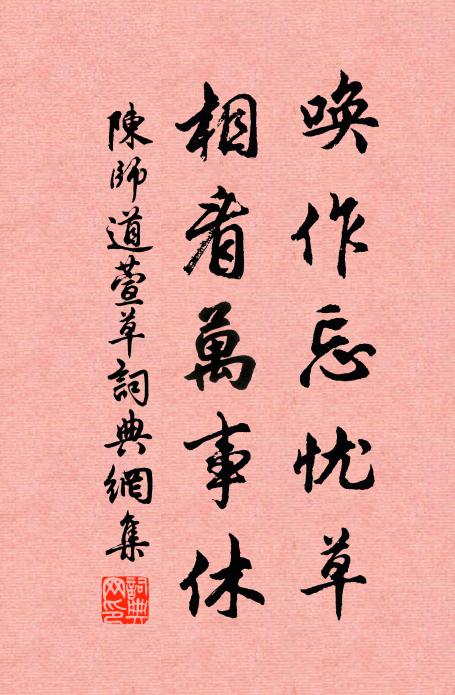 喚作忘忧草
相看萬事休
陳師道萱草詞典網集
詞典網印